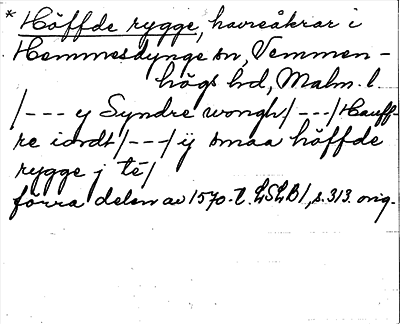 * Höffde rygge, havreåkrar i
Hemmesdynge sn, Vemmen-
högs hd, Malm. l.
/--- y Syndre wongh/---/Hauff-
re iordt/---/ij smaa höffde
rygge j té/
förra delen av 1570-t. LSLB1, s. 313. orig.